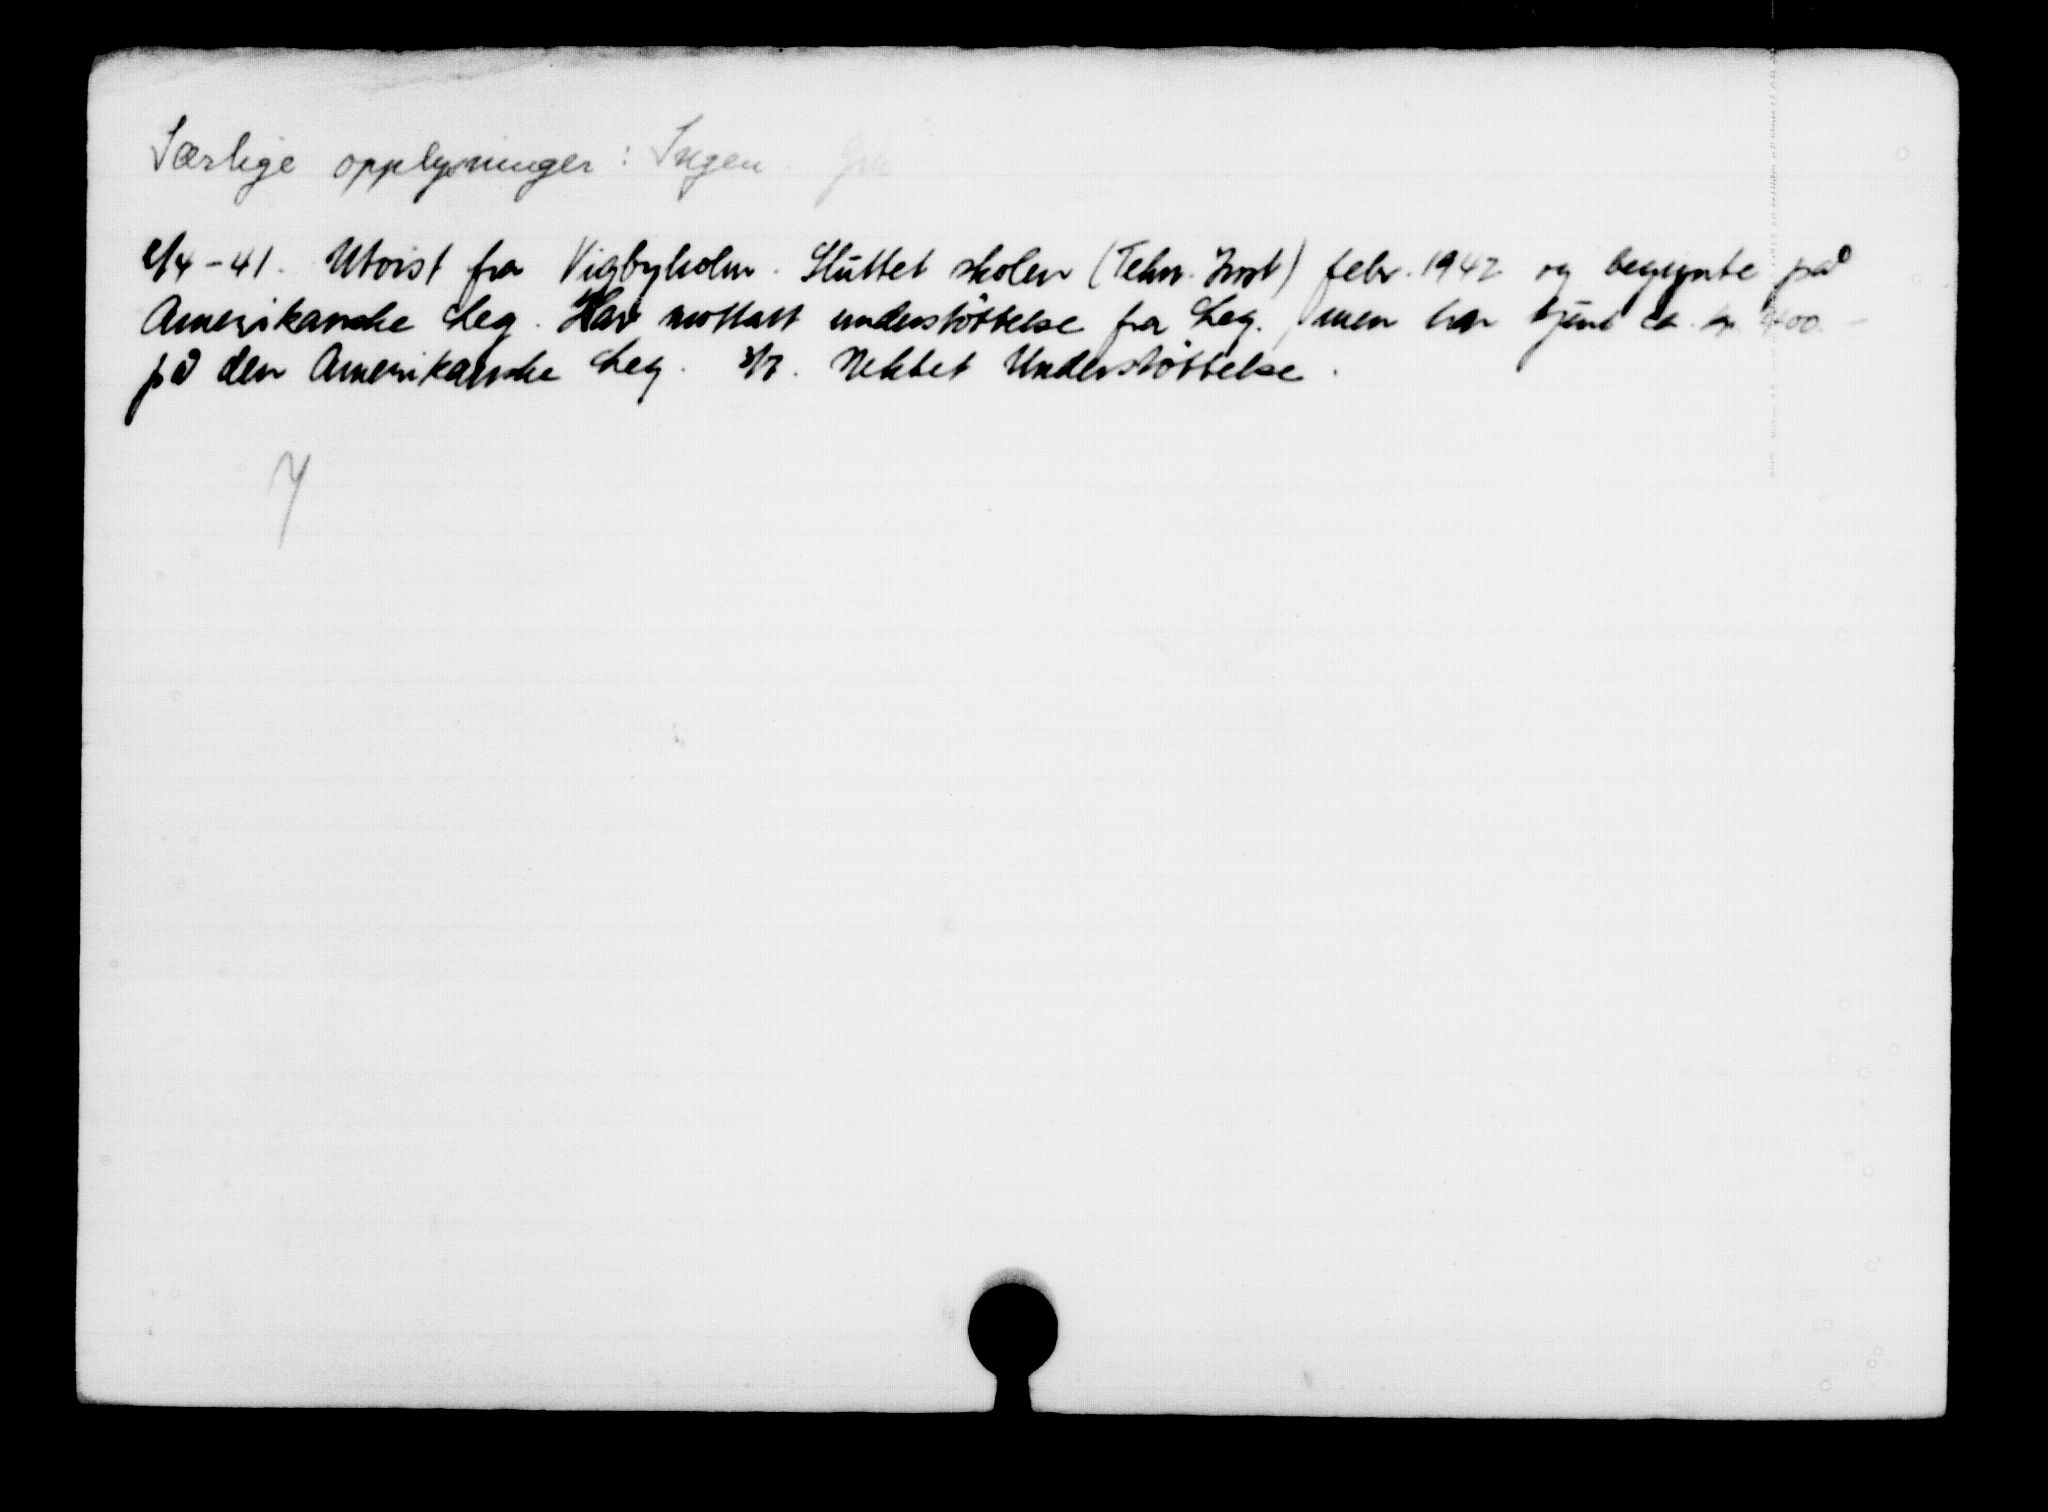 Særlige opplysninger: Ingen.
/4-41. Utvist fra Vigbyholm. Sluttet skolen (Tekn. Inst) febr. 1942 og begynte på
Amerikanske Leg. Har mottatt understöttelse fra Leg., men har tjent ca. kr. 400.-
på den Amerikanske Leg. Nektet Understöttelse.